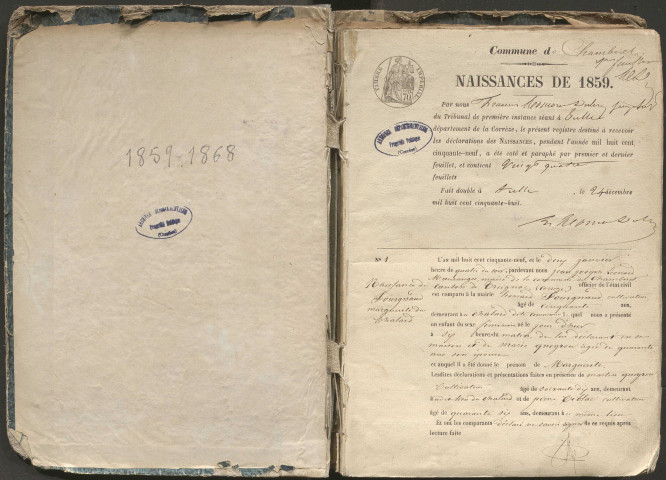 1859-1868
ARCHIVES DÉPARTEMENTALES
Propriété Publique
(Corrèze)
Commune de Chamboret
TIMBRE IMPÉRIAL
NAISSANCES DE 1859.
Par nous
du Tribunal de première instance séant à Tulle
département de la Corrèze, le présent registre destiné à recevoir
les déclarations des NAISSANCES, pendant l'année mil huit cent
cinquante-neuf, a été coté et paraphé par premier et dernier
feuillet, et contient Vingt quatre
feuillets
ARCHIVES DÉPARTEMENTALES
Propriété Publique
(Corrèze)
Fait double à Tulle, le 24 décembre
mil huit cent cinquante-huit.
N° 1
Naissance de
Fourgnaud
marguerite du
Chalard
L'an mil huit cent cinquante-neuf, et le deux janvier
heure de quatre du soir, pardevant nous jean joseph
maire de la commune de
canton de officier de l'état civil
est comparu à la mairie Leonard Fourgnaud cultivateur
âgé de cinquante ans,
demeurant à Chalard dite commune lequel nous a présenté
un enfant du sexe féminin né le jour d'hui
à six heures du matin de lui déclarant en sa
maison et de marie âgée de quarante
ans son épouse
et auquel il a été donné le prénom de Marguerite
Lesdites déclarations et présentations faites en présence de martin
cultivateur âgé de soixante dix ans, demeurant
du Chalard et de pierre cultivateur
âgé de quarante six ans, demeurant au même lieu
Et ont les comparants déclaré ne savoir signer de ce requis après
lecture faite